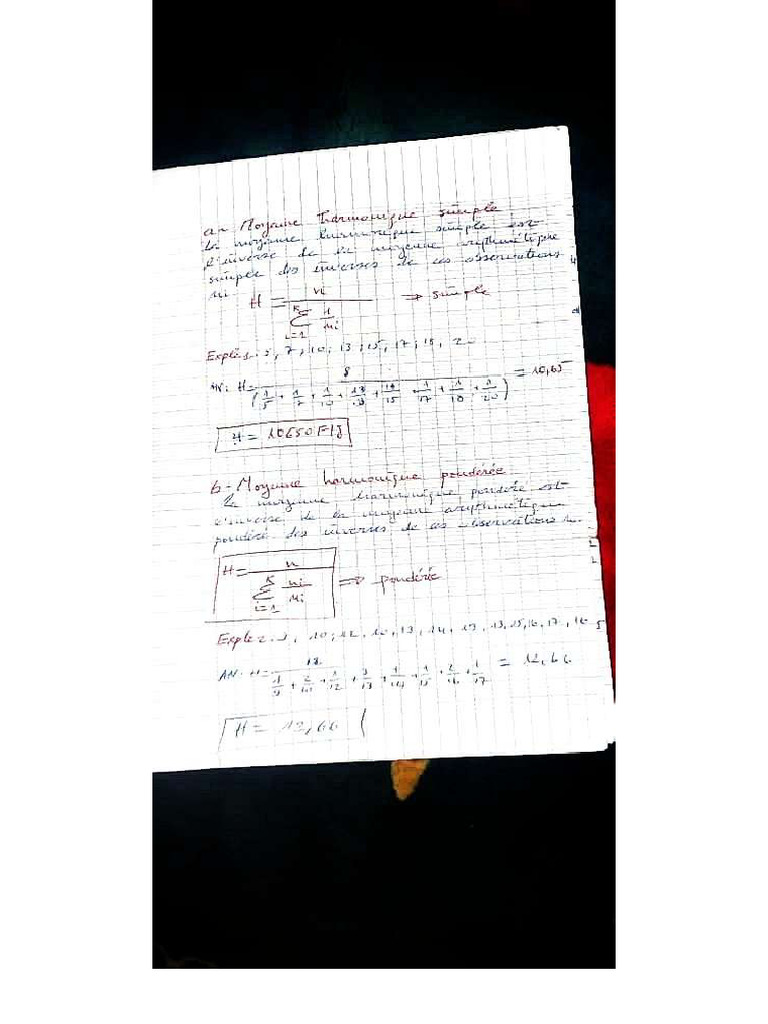 a- Moyenne harmonique simple
La moyenne harmonique simple est
l'inverse de la moyenne arythmétique
simple des inverses de ces observations
xi.
H = n / Σ(i=1 → K) 1/xi ⇒ simple
Exple1: 5, 7, 10, 13, 15, 17, 18, 2
AN: H = 8 / (1/5 + 1/7 + 1/10 + + /15 + 1/17 + 1/18 + 1/20) = 10,65
H = 10650F/J
b- Moyenne harmonique pondérée
La moyenne harmonique pondéré est
l'inverse de la moyenne arythmétique
pondéré des inverses de ces observations
H = n / Σ(i=1 → K) ni/xi ⇒ pondérée
Exple2: 9, 10, 12, 10, 13, 14, 13, 15, 16, 17, 16
AN: H = / 1/9 + 2/10 + 1/12 + 3/13 + 1/14 + 1/15 + 2/16 + 1/17 = 12,66
H = 12,66